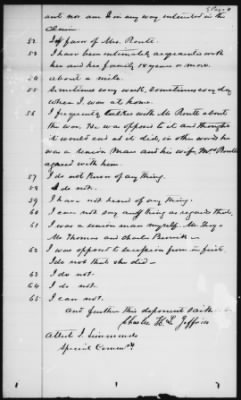 and nor am I in any way interested in the
claim
52. In favor of Mrs. Routh.
53. I have been intimately acquainted with
her and her family 18 years or more.
54. about a mile.
55. Sometimes every week. Sometimes every day
When I was at home.
56. I frequently talked with Mr Routh about
the war. He was opposed to it and thought
it would end as it did, in other words he
was a union man and his wife, Mrs Routh
agreed with him.
57. I do not know of any thing.
58. I do not.
59. I have not heard of any thing.
60. I can not say any thing as regards that.
61. I was a union man myself. Mr
Mr Thomas and Charles
62. I was opposed to secession from in first.
I do not that she did
63. I do not.
64. I do not.
65. I can not.
And further this deponent saith
Charles H.
Attest J.
Special Commr